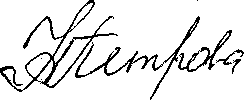 НПетрова